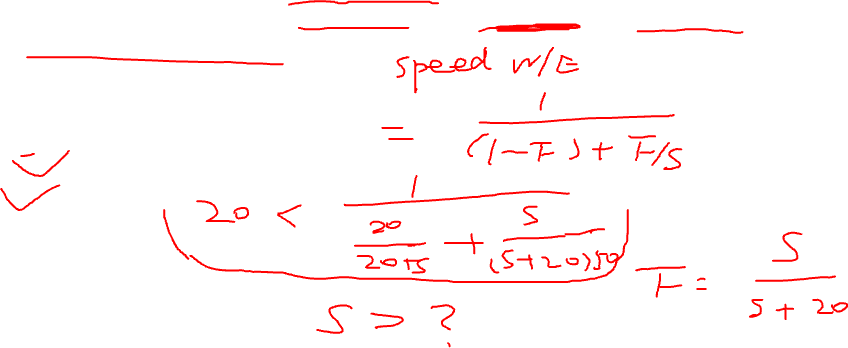 speed w/E
= 1 / ((1-F) + F/S)
20 < 1 / (20/(20+s) + S/((S+20)50))
F = S/(S+20)
S > ?